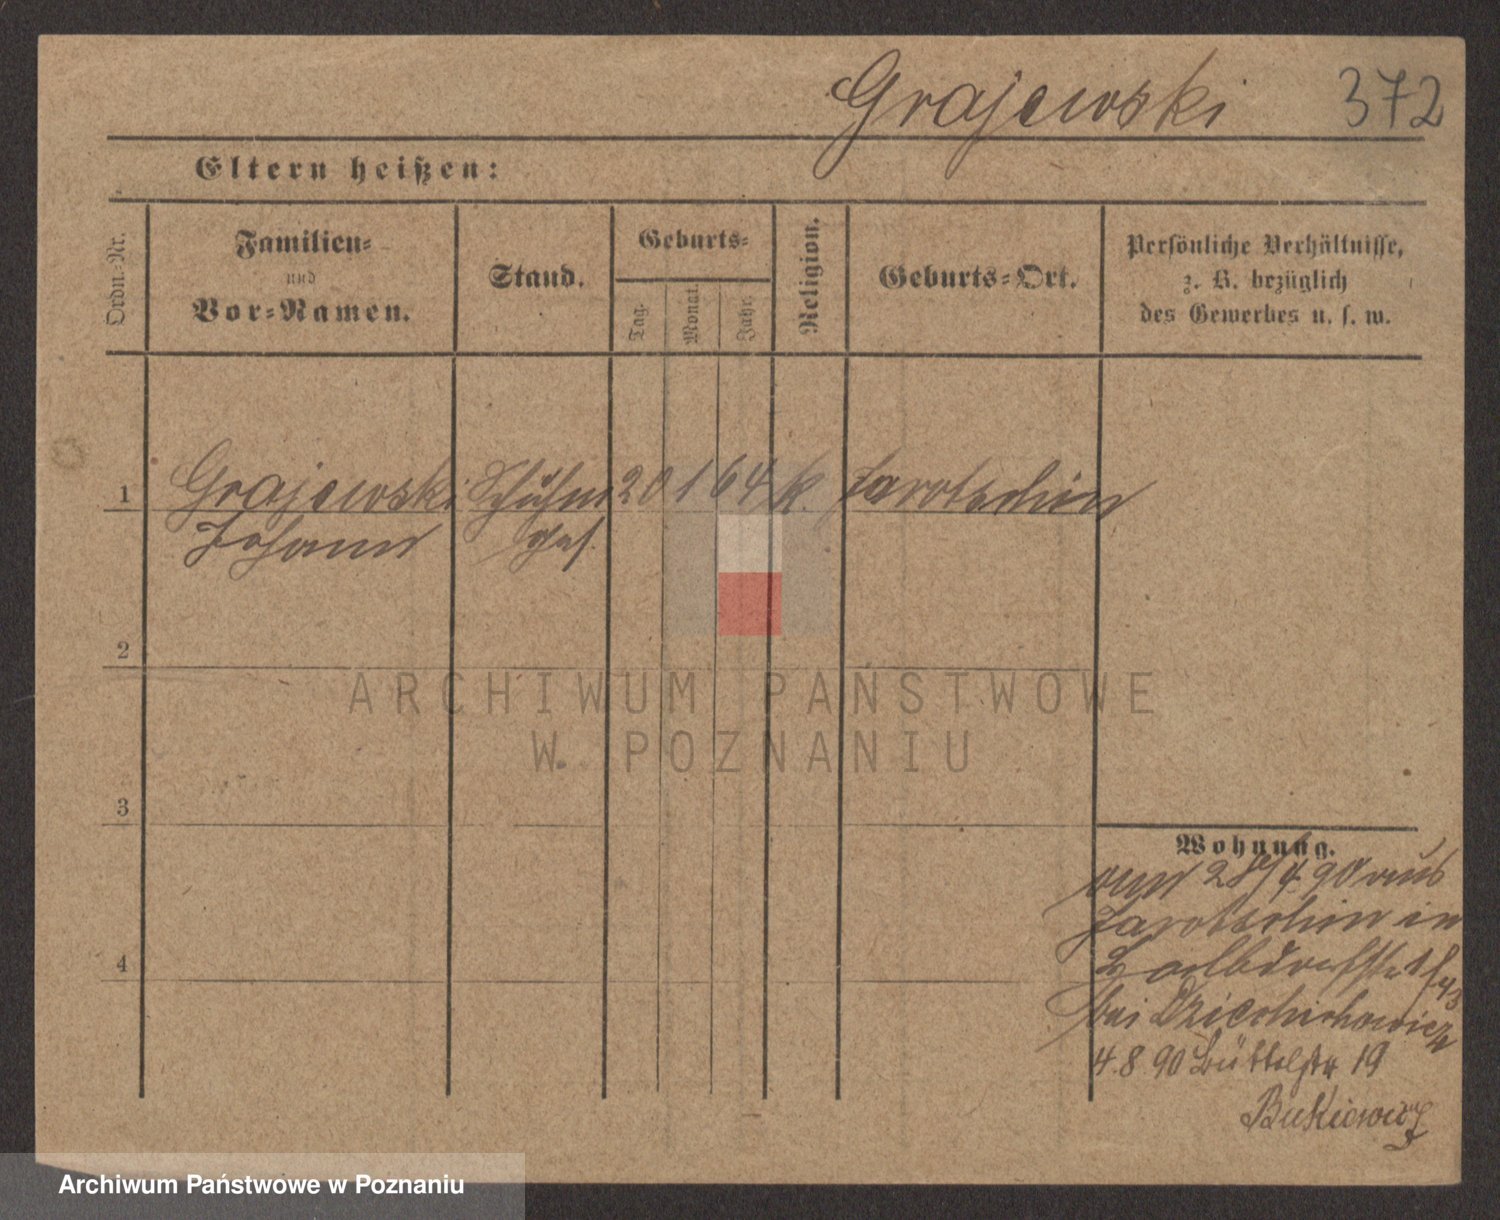 Grajewski 372
Eltern heißen:
Ordn.-Nr.
Familien-
und
Vor-Namen.
Stand.
Geburts-
Tag.
Monat.
Jahr.
Religion.
Geburts-Ort.
Persönliche Verhältnisse,
z. B. bezüglich
des Gewerbes u. s. w.
1 Grajewski Schuhm 20 1 64 k. Jarotschin
Johann ges.
2
ARCHIWUM PAŃSTWOWE
W POZNANIU
3
Wohnung.
28/4 90 aus
Jarotschin in
4
bei
4.8 90 Büttelstr 19
Bukiewicz
Archiwum Państwowe w Poznaniu